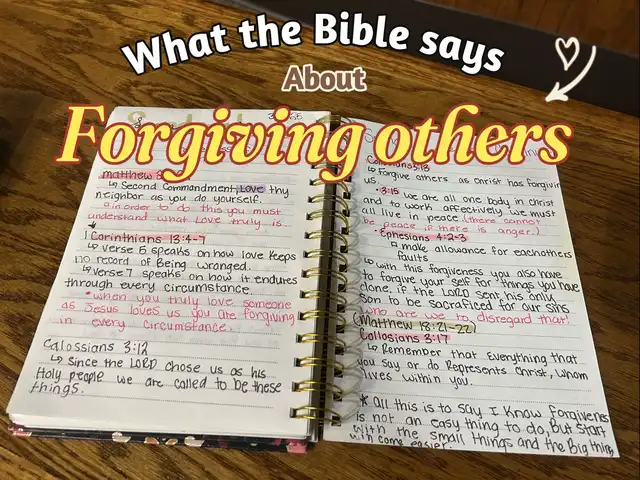 What the Bible says
About
Forgiving others
matthew
↳ Second Commandment, Love thy
neighbor as you do yourself.
*in order to do this you must
understand what love truly is
1 Corinthians 13:4-7
↳ verse 5 speaks on how love keeps
no record of Being wronged.
↳ verse 7 speaks on how it endures
through every circumstance
*when you truly love someone
as Jesus loves us you are forgiving
in every circumstance.
Calossians 3:12
↳ Since the LORD chose us as his
Holy people we are called to be these
things.
Colossians 3:13
↳ Forgive others as Christ has forgivin
us.
• 3:15
↳ we are all one body in christ
and to work affectively we must
all live in peace (there cannot
be peace if there is anger.)
• Ephesians 4:2-3
a make allowance for eachothers
faults
↳ with this forgiveness you also have
to forgive your self for things you have
done, if the LORD sent his only
Son to be sacrafited for our sins
who are we to disregard that!
(Matthew 18:21-22)
Collosians 3:17
↳ Remember that Everything that
you say or do Represents Christ, whom
lives within you.
* All this is to say I know forgiveness
is not an easy thing to do, But start
with the small things and the Big thing
will come easier.